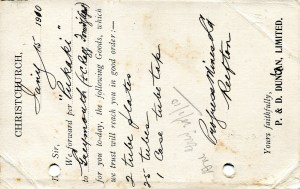 CHRISTCHURCH, Jany 15 1910
Sir,
We forward per "Pukaki"
to Greymouth
for you to-day, the following Goods, which
we trust will reach you in good order:—
2 tube plates
25 tubes
1 Case tube
Progress Mines Ld
Reefton
Yours faithfully,
P. & D. DUNCAN, LIMITED.